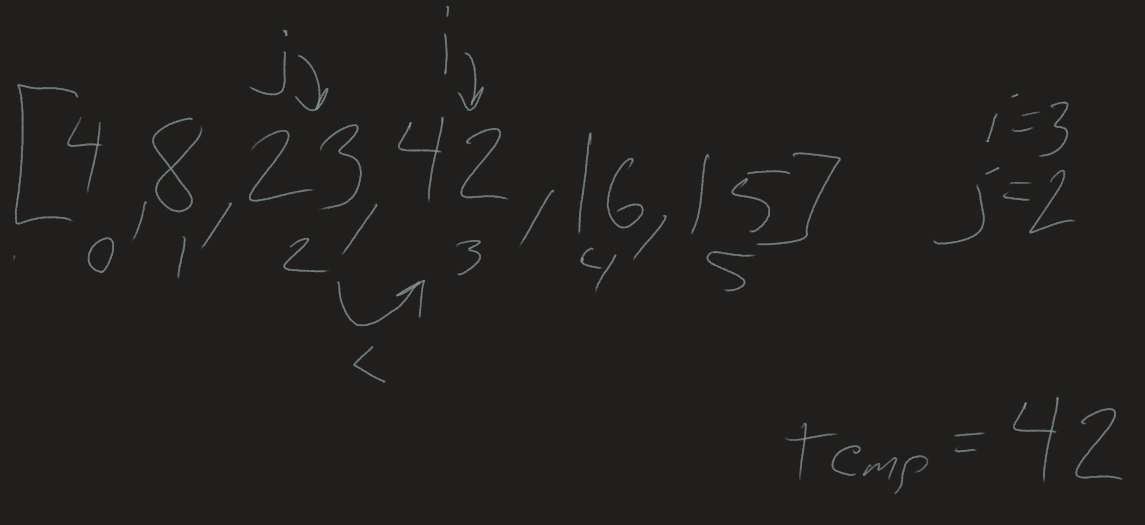 j i
[4, 8, 23, 42, 16, 15]
0 1 2 3 4 5
<
i=3
j=2
temp = 42